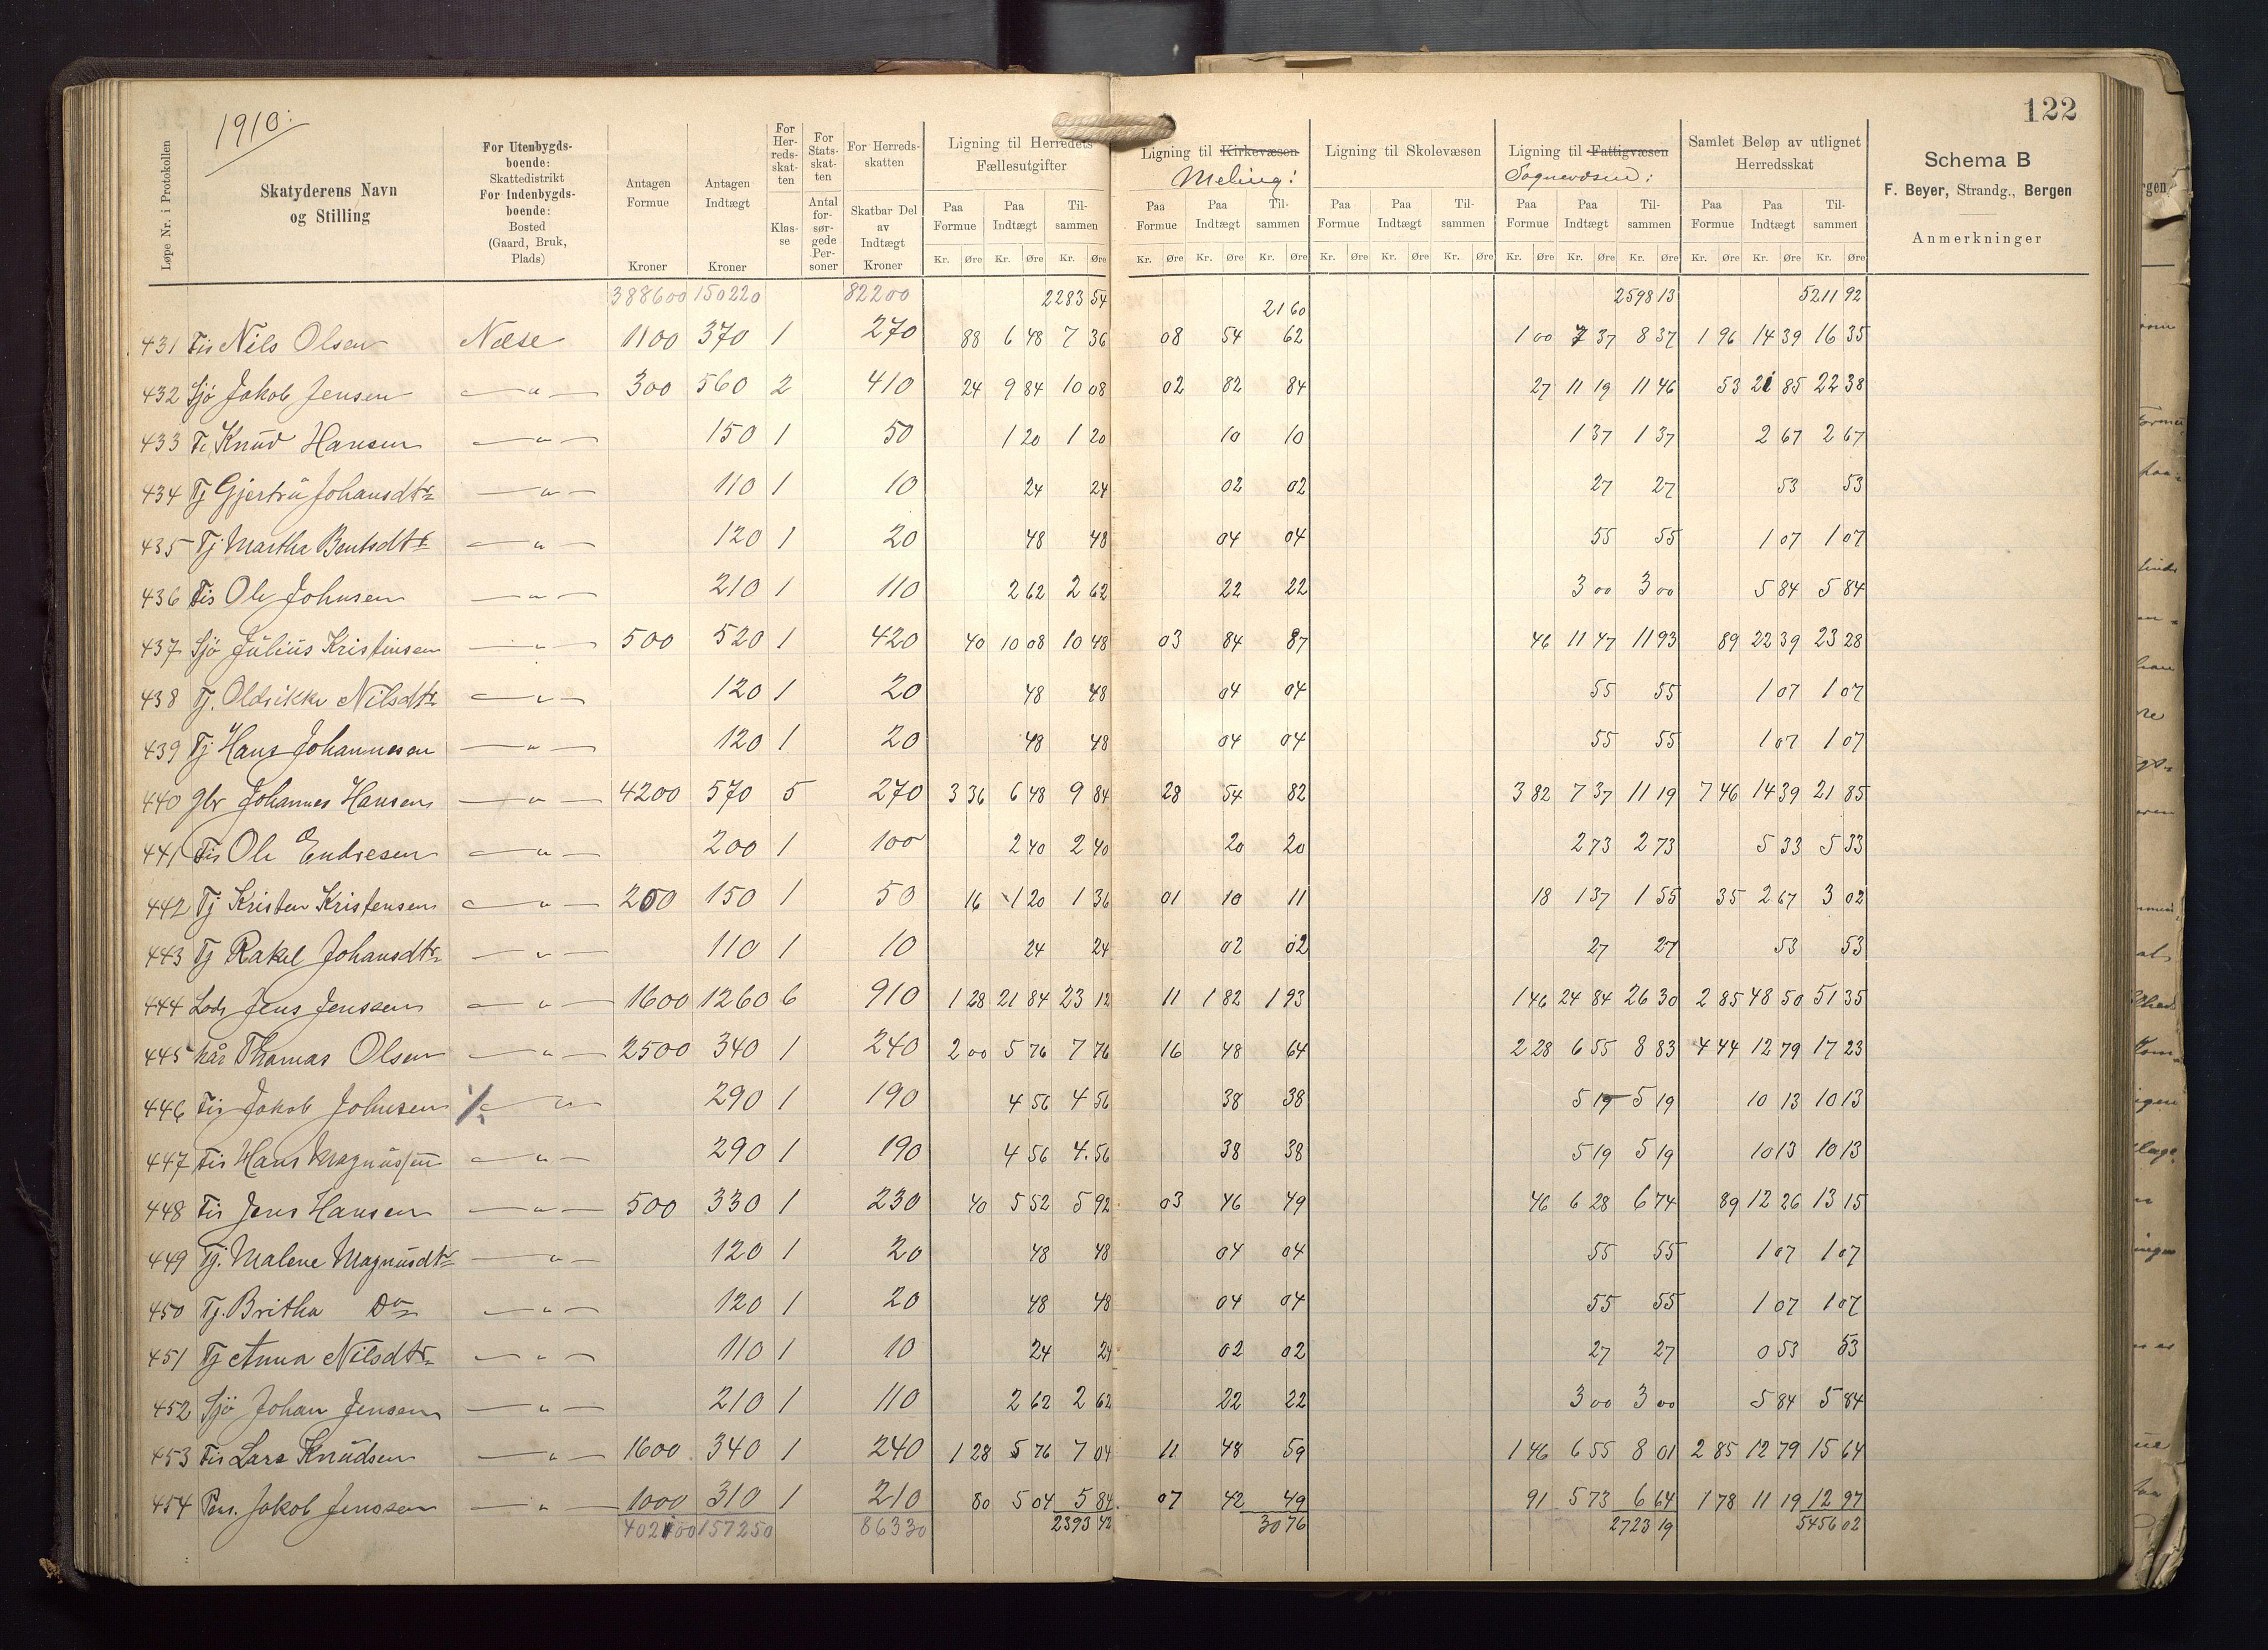 1910:
122
Løpe Nr. i Protokollen
Skatyderens Navn og Stilling
For Utenbygds-boende: Skattedistrikt For Indenbygds-boende: Bosted (Gaard, Bruk, Plads)
Antagen Formue Kroner
Antagen Indtægt Kroner
For Her-reds-skat-ten Klas-se
For Stats-skat-ten Antal for-sør-gede Per-soner
For Herreds-skatten Skatbar Del av Indtægt Kroner
Ligning til Herredets Fællesutgifter
Ligning til Kirkevæsen
Meling:
Ligning til Skolevæsen
Ligning til Fattigvæsen
Sognevæsen:
Samlet Beløp av utlignet Herredsskat
Schema B
F. Beyer, Strandg., Bergen
Anmerkninger
Paa Formue Paa Indtægt Til-sammen Paa Formue Paa Indtægt Til-sammen Paa Formue Paa Indtægt Til-sammen Paa Formue Paa Indtægt Til-sammen Paa Formue Paa Indtægt Til-sammen
Kr. Øre Kr. Øre Kr. Øre Kr. Øre Kr. Øre Kr. Øre Kr. Øre Kr. Øre Kr. Øre Kr. Øre Kr. Øre Kr. Øre Kr. Øre Kr. Øre Kr. Øre
388600 150220 82200 2283 54 21 60 2598 13 5211 92
431 Fis Nils Olsen Næse 1100 370 1 270 88 6 48 7 36 08 54 62 1 00 7 37 8 37 1 96 14 39 16 35
432 Sjö Jakob Jensen — " — 300 560 2 410 24 9 84 10 08 02 82 84 27 11 19 11 46 53 21 85 22 38
433 Fi Knud Hansen — " — 150 1 50 1 20 1 20 10 10 1 37 1 37 2 67 2 67
434 Tj Gjertrü Johansdtr — " — 110 1 10 24 24 02 02 27 27 53 53
435 Tj Martha Bentsdtr — " — 120 1 20 48 48 04 04 55 55 1 07 1 07
436 Fis Ole Johnsen — " — 210 1 110 2 62 2 62 22 22 3 00 3 00 5 84 5 84
437 Sjö Julius Kristinsen — " — 500 520 1 420 40 10 08 10 48 03 84 87 46 11 47 11 93 89 22 39 23 28
438 Tj. Oldrikke Nilsdtr — " — 120 1 20 48 48 04 04 55 55 1 07 1 07
439 Tj Hans Johannesen — " — 120 1 20 48 48 04 04 55 55 1 07 1 07
440 gbr Johannes Hansen — " — 4200 570 5 270 3 36 6 48 9 84 28 54 82 3 82 7 37 11 19 7 46 14 39 21 85
441 Fis Ole O Endresen — " — 200 1 100 2 40 2 40 20 20 2 73 2 73 5 33 5 33
442 Tj Kristen Kristensen — " — 200 150 1 50 16 1 20 1 36 01 10 11 18 1 37 1 55 35 2 67 3 02
443 Tj Rakel Johansdtr — " — 110 1 10 24 24 02 02 27 27 53 53
444 Lods Jens Jenssen — " — 1600 1260 6 910 1 28 21 84 23 12 11 1 82 1 93 1 46 24 84 26 30 2 85 48 50 51 35
445 kår Thomas Olsen — " — 2500 340 1 240 2 00 5 76 7 76 16 48 64 2 28 6 55 8 83 4 44 12 79 17 23
446 Fis Jakob Johnsen — " — 290 1 190 4 56 4 56 38 38 5 19 5 19 10 13 10 13
447 Fis Hans Magnussen — " — 290 1 190 4 56 4.56 38 38 5 19 5 19 10 13 10 13
448 Fis Jens Hansen — " — 500 330 1 230 40 5 52 5 92 03 46 49 46 6 28 6 74 89 12 26 13 15
449 Tj. Malene Magnusdtr — " — 120 1 20 48 48 04 04 55 55 1 07 1 07
450 Tj. Britha Do — " — 120 1 20 48 48 04 04 55 55 1 07 1 07
451 Tj Anna Nilsdtr — " — 110 1 10 24 24 02 02 27 27 0 53 53
452 Sjö Johan Jensen — " — 210 1 110 2 62 2 62 22 22 3 00 3 00 5 84 5 84
453 Fis Lars Knudsen — " — 1600 340 1 240 1 28 5 76 7 04 11 48 59 1 46 6 55 8 01 2 85 12 79 15 64
454 Pens. Jakob Jenssen — " — 1000 310 1 210 80 5 04 5 84 07 42 49 91 5 73 6 64 1 78 11 19 12 97
402100 157250 86330 2393 42 30 76 2723 19 5456 02